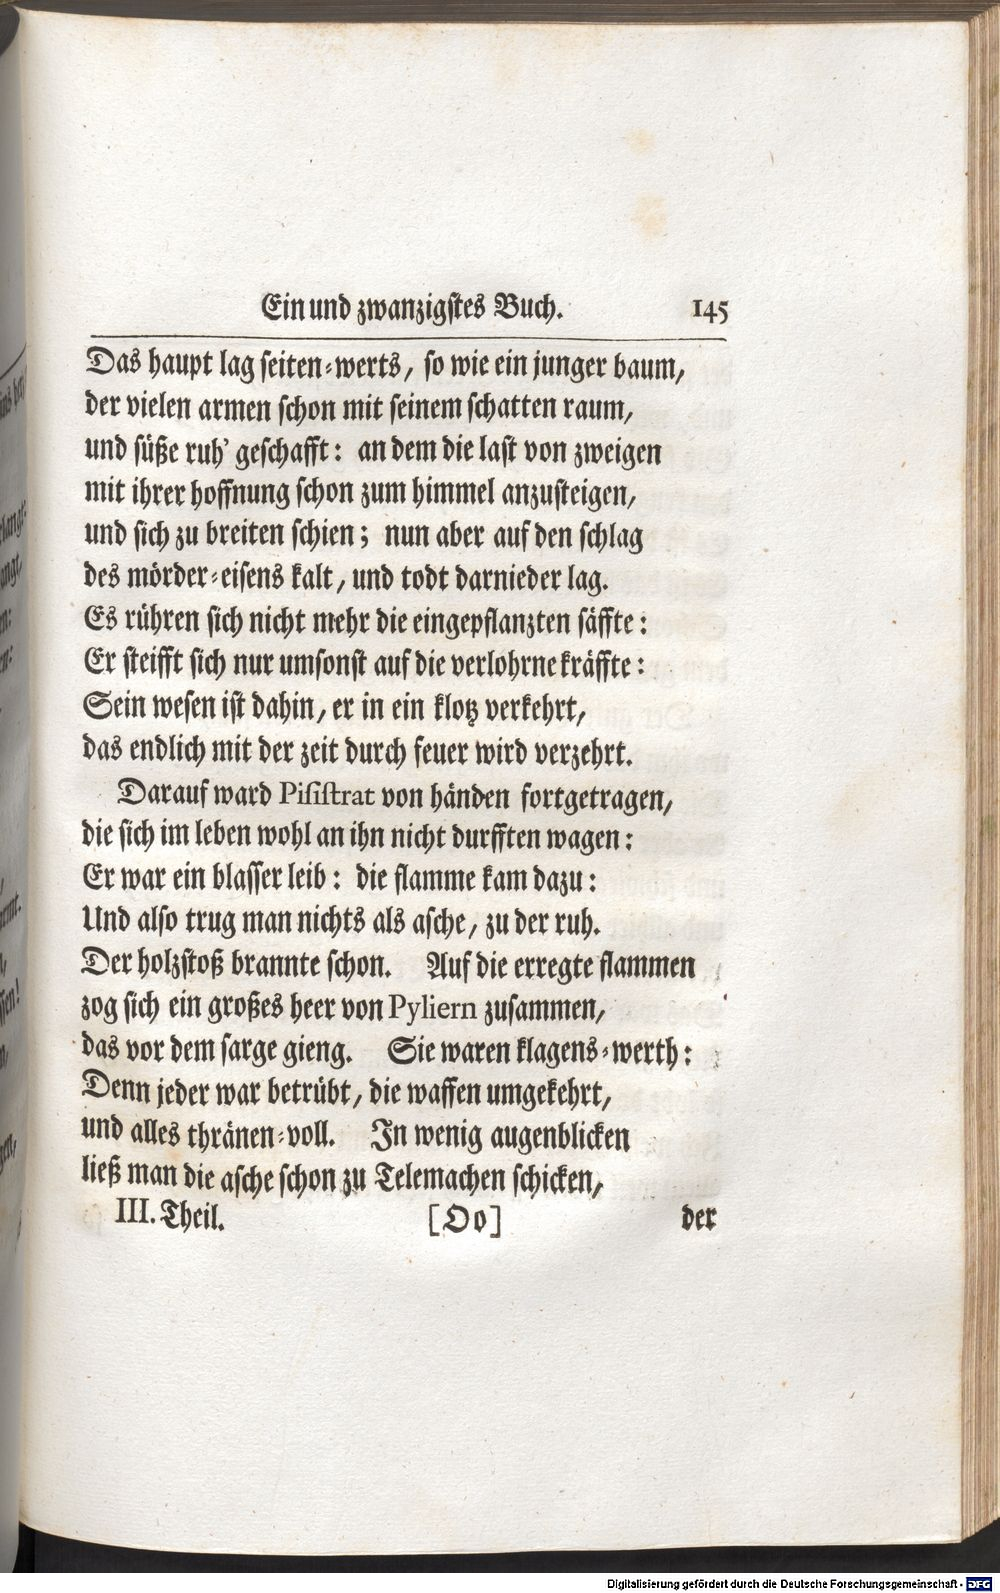 Ein und zwanzigstes Buch. 145
Das haupt lag seiten-werts, so wie ein junger baum,
der vielen armen schon mit seinem schatten raum,
und süße ruh' geschafft: an dem die last von zweigen
mit ihrer hoffnung schon zum himmel anzusteigen,
und sich zu breiten schien; nun aber auf den schlag
des mörder-eisens kalt, und todt darnieder lag.
Es rühren sich nicht mehr die eingepflanzten säffte:
Er steifft sich nur umsonst auf die verlohrne kräffte:
Sein wesen ist dahin, er in ein klotz verkehrt,
das endlich mit der zeit durch feuer wird verzehrt.
Darauf ward Pisistrat von händen fortgetragen,
die sich im leben wohl an ihn nicht durfften wagen:
Er war ein blasser leib: die flamme kam dazu:
Und also trug man nichts als asche, zu der ruh.
Der holzstoß brannte schon. Auf die erregte flammen
zog sich ein großes heer von Pyliern zusammen,
das vor dem sarge gieng. Sie waren klagens-werth:
Denn jeder war betrübt, die waffen umgekehrt,
und alles thränen-voll. In wenig augenblicken
ließ man die asche schon zu Telemachen schicken,
III. Theil. [Oo] der
Digitalisierung gefördert durch die Deutsche Forschungsgemeinschaft - DFG